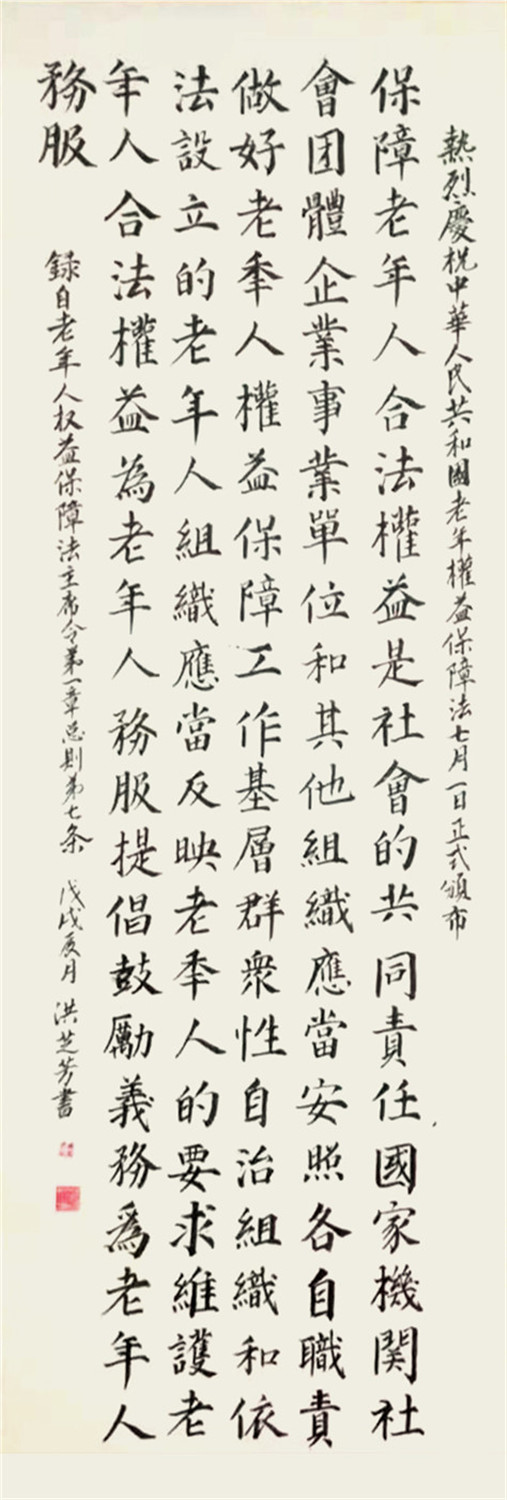 熱烈慶祝中華人民共和國老年權益保障法七月一日正式頒布
保障老年人合法權益是社會的共同責任國家機関社
會団體企業事業單位和其他組織應當安照各自職責
做好老秊人權益保障工作基層群衆性自治組織和依
法設立的老年人組織應當反映老秊人的要求維護老
年人合法權益為老年人務服提倡鼓勵義務爲老年人
務服
録自老年人权益保障法主席令第一章总則第七条 戊戌辰月 洪芝芳書